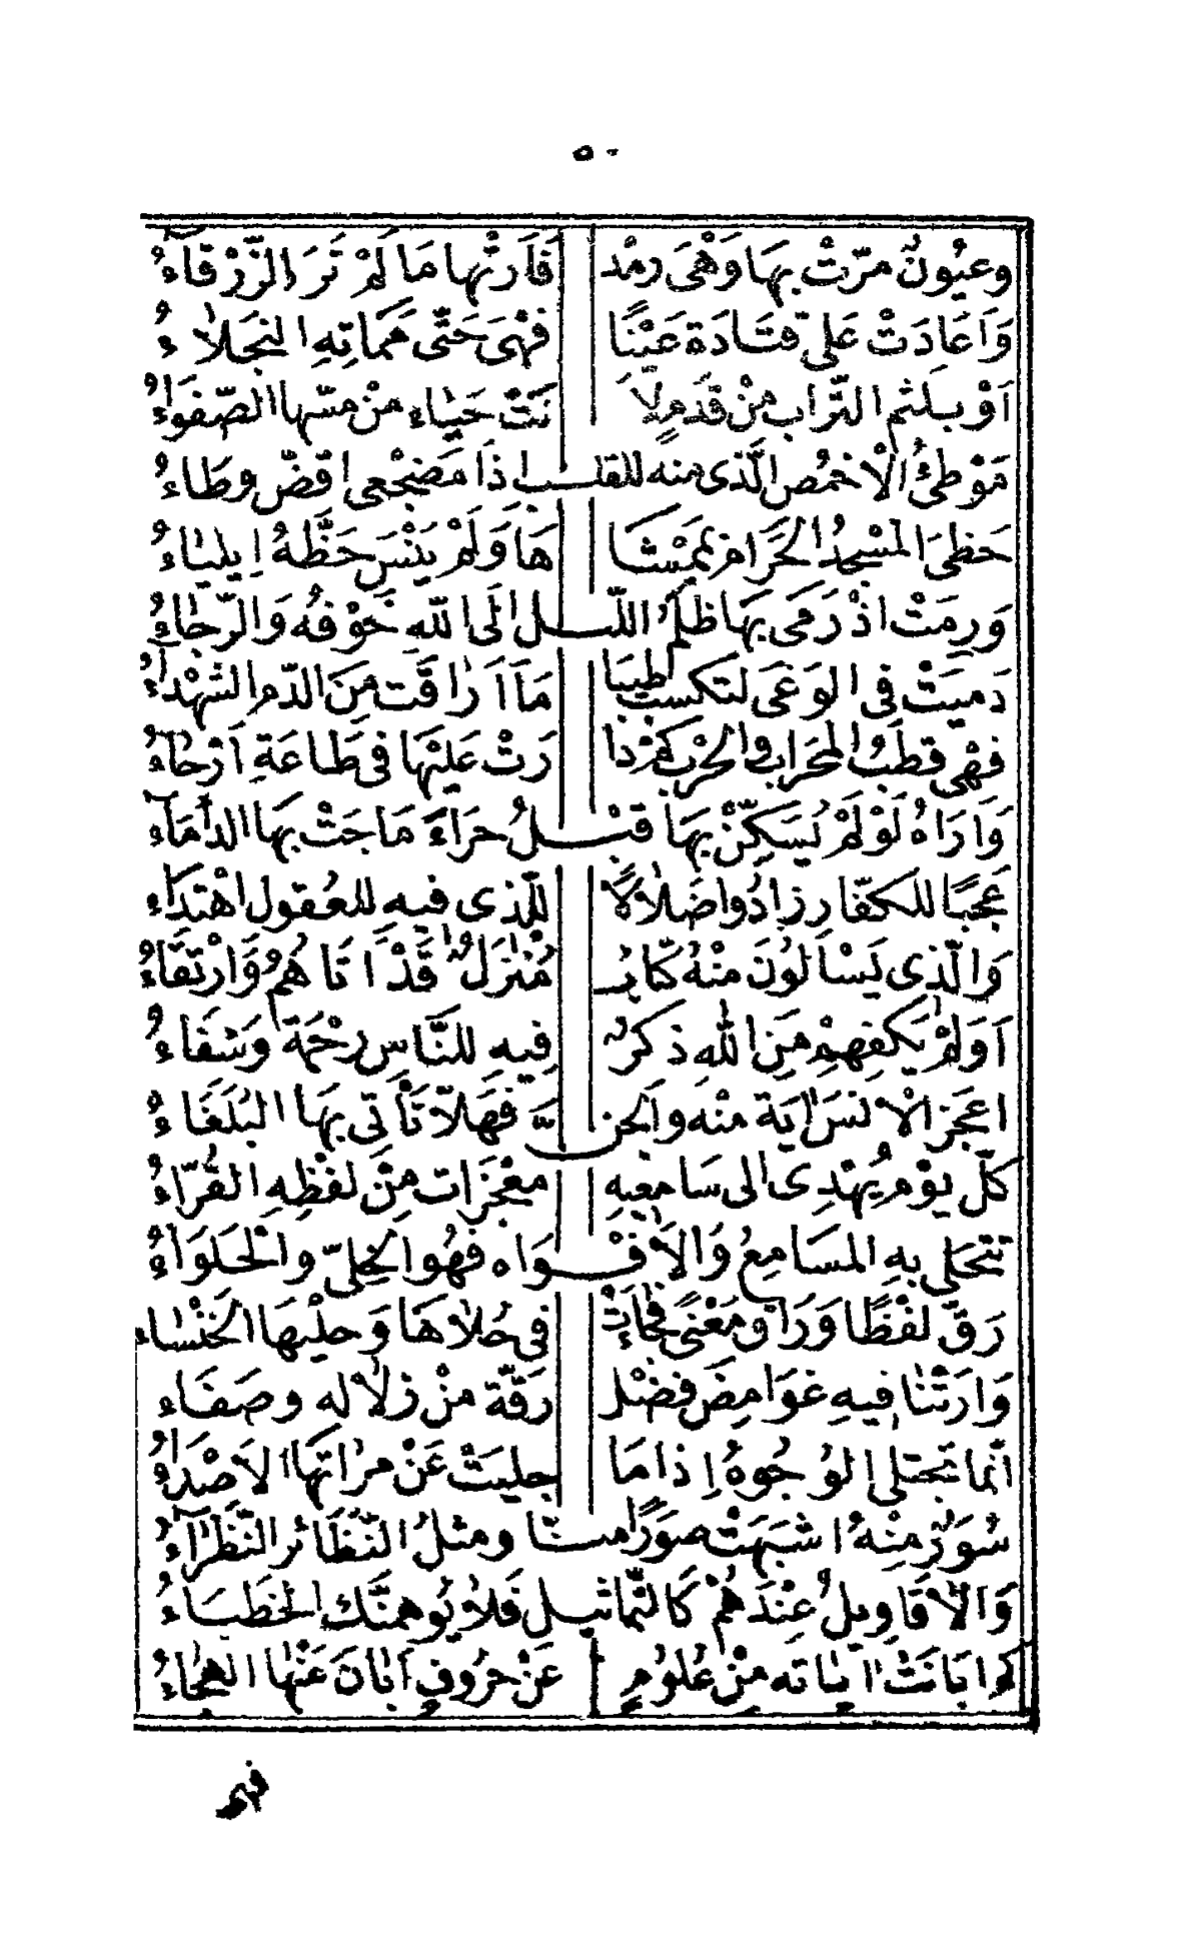 ٥٠
وَعُيُونٌ مَرَّتْ بِهَا وَهْىَ رُمْد فَأَرَتْهَا مَا لَمْ تَرَ الزَّرْقَآءُ
وَاَعَادَتْ عَلىٰ قتَادَة عَيْنًا فهْىَ حَتّٰى مَمَاتِهِ النجَلآءُ
اَوْ بِلَثْمِ التُّرَابِ مِنْ قَدَمٍ لَا نَتْ حَيَاء مِنْ مسّهَا الصّفْوَاءُ
مَوْطِئُ الْاَخْمُصِ الَّذى منه للقلب اذَا مَضجْعى اقَضّ وِطَاءُ
حَظِىَ المَسْجِدُ الحَرَام بمَمْشَا هَا وَلَمْ يَنْسَ حَظَّهُ اِيلِيَاءُ
وَرِمَتْ اذْ رَمَى بِهَا ظُلَمَ اللّيل اِلَى اللهِ خَوْفُهُ وَالرَّجَاءُ
دَميَتْ فى الوَغَى لتكسبَ طيبًا مَآ اَرَاقَت مِنَ الدّم الشهْدَاءُ
فهْى قطبُ المحرَابِ والحرْب كمْ دَا رَتْ عَلَيْهَا فى طَاعَةِ اَرْحَآءُ
وَاَرَاهُ لَوْ لَمْ يُسَكِّنْ بِهَا قبْلُ حرَاءً مَا جَتْ بهَا الدأمَآءِ
عَجَبًا للكفّار زادُوا ضَلاٰلًا بالّذى فيهِ للعُقول اهْتِدَاء
وَالّذى يَسْألُونَ مِنْهُ كتَابٌ مُنْزَلٌ قَدْ اَتَاهُمُ وَارْتقَاءُ
اَوَلَمْ يَكفِهِمْ مِنَ اللهِ ذكرٌ فِيهِ للنَّاسِ رَحْمَةٌ وَشفَاءُ
اعجَز الاِنسَ اٰيَة منْه والجنّ فهَلّا تَأتى بِهَا البُلَغَاءُ
كلّ يَوْمٍ يُهْدِى الى سَامعيهِ معْجزَات مِنْ لفظِهِ القُرَّاءُ
تتحَلّى بِهِ المسَامِعُ وَالاَفْوَاه فهُوَ الحلىّ والْحَلوَاءُ
رَقّ لفْظًا وَرَاقَ مَعْنًى فجَاءَتْ فى حُلاَهَا وَحليْهَا الخنْسَاء
وَاَرَتْنَا فيهِ غوَامِضَ فضْل رقَّة منْ زلاَله وصَفَاء
اَنّما تجْتلى الوُجُوهُ اِذا مَا جليَتْ عَنْ مرْاتِهَا الاَصْدَاءُ
سُوَرٌ مِنْهُ اشبَهَتْ صوَرًا منّا ومثلُ النّظَائر النّظَرَآءُ
وَالاَقَاوِيلُ عِنْدَهُمْ كَالتّمَاثيل فَلاَ يُوهمنَّكَ الخطَبَاءُ
كم اَبَانَتْ ايَاته مِنْ عُلومٍ عَنْ حرُوفٍ اَبَانَ عَنْهَا الهجَاءُ
فهى